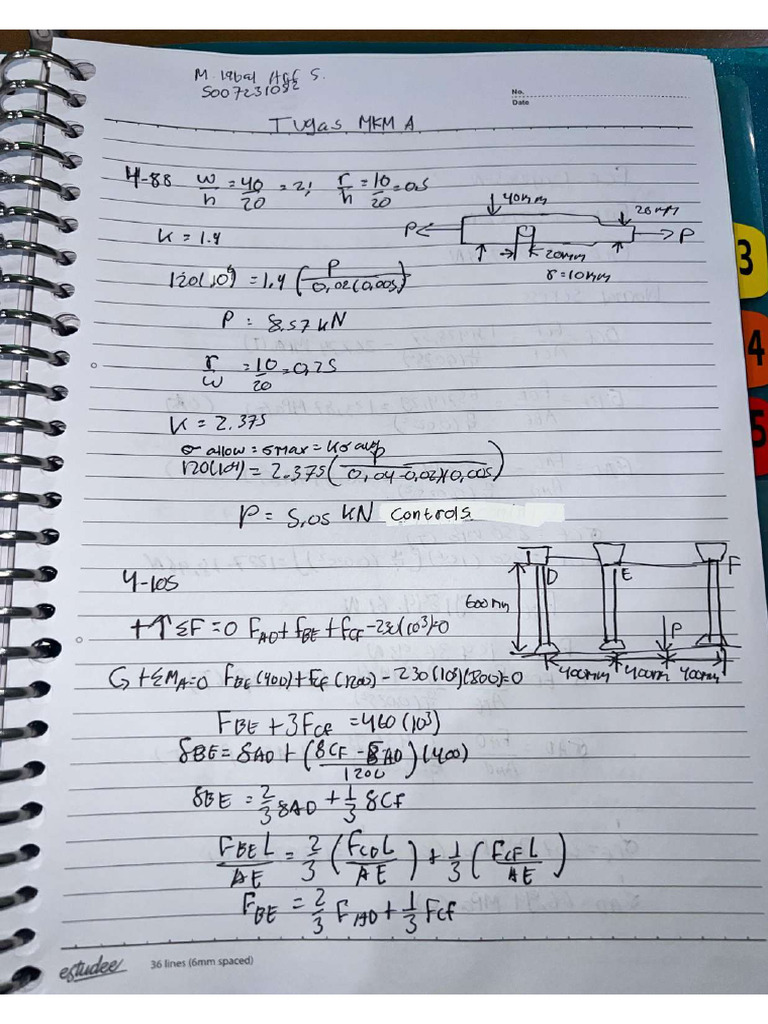 M. Iqbal Arif S.
5007231092
No.
Date
Tugas MKM A
4-88 w/h = 40/20 = 2; r/h = 10/20 = 0,5
40mm
20mm
P
P
20mm
r = 10mm
K = 1.4
120(10⁶) = 1.4 (P/0,02(0,005))
P = 8.57 kN
r/w = 10/20 = 0,25
K = 2.375
σ allow = σmax = Kσ avg
120(10⁶) = 2.375 (P/0,04-0,02)(0,005)
P = 5,05 kN Controls
4-105
D
E
F
600mm
P
400mm 400mm 400mm
+↑ΣF=0 F_AD + F_BE + F_CF - 230(10³)=0
↺+ΣM_A=0 F_BE(400) + F_CF(1200) - 230(10³)(800)=0
F_BE + 3F_CF = 460(10³)
δBE = δAD + (δCF - δAD/1200)(400)
δBE = 2/3 δAD + 1/3 δCF
F_BE L/AE = 2/3 (F_CD L/AE) + 1/3 (F_CF L/AE)
F_BE = 2/3 F_AD + 1/3 F_CF
estudee 36 lines (6mm spaced)
3
4
5